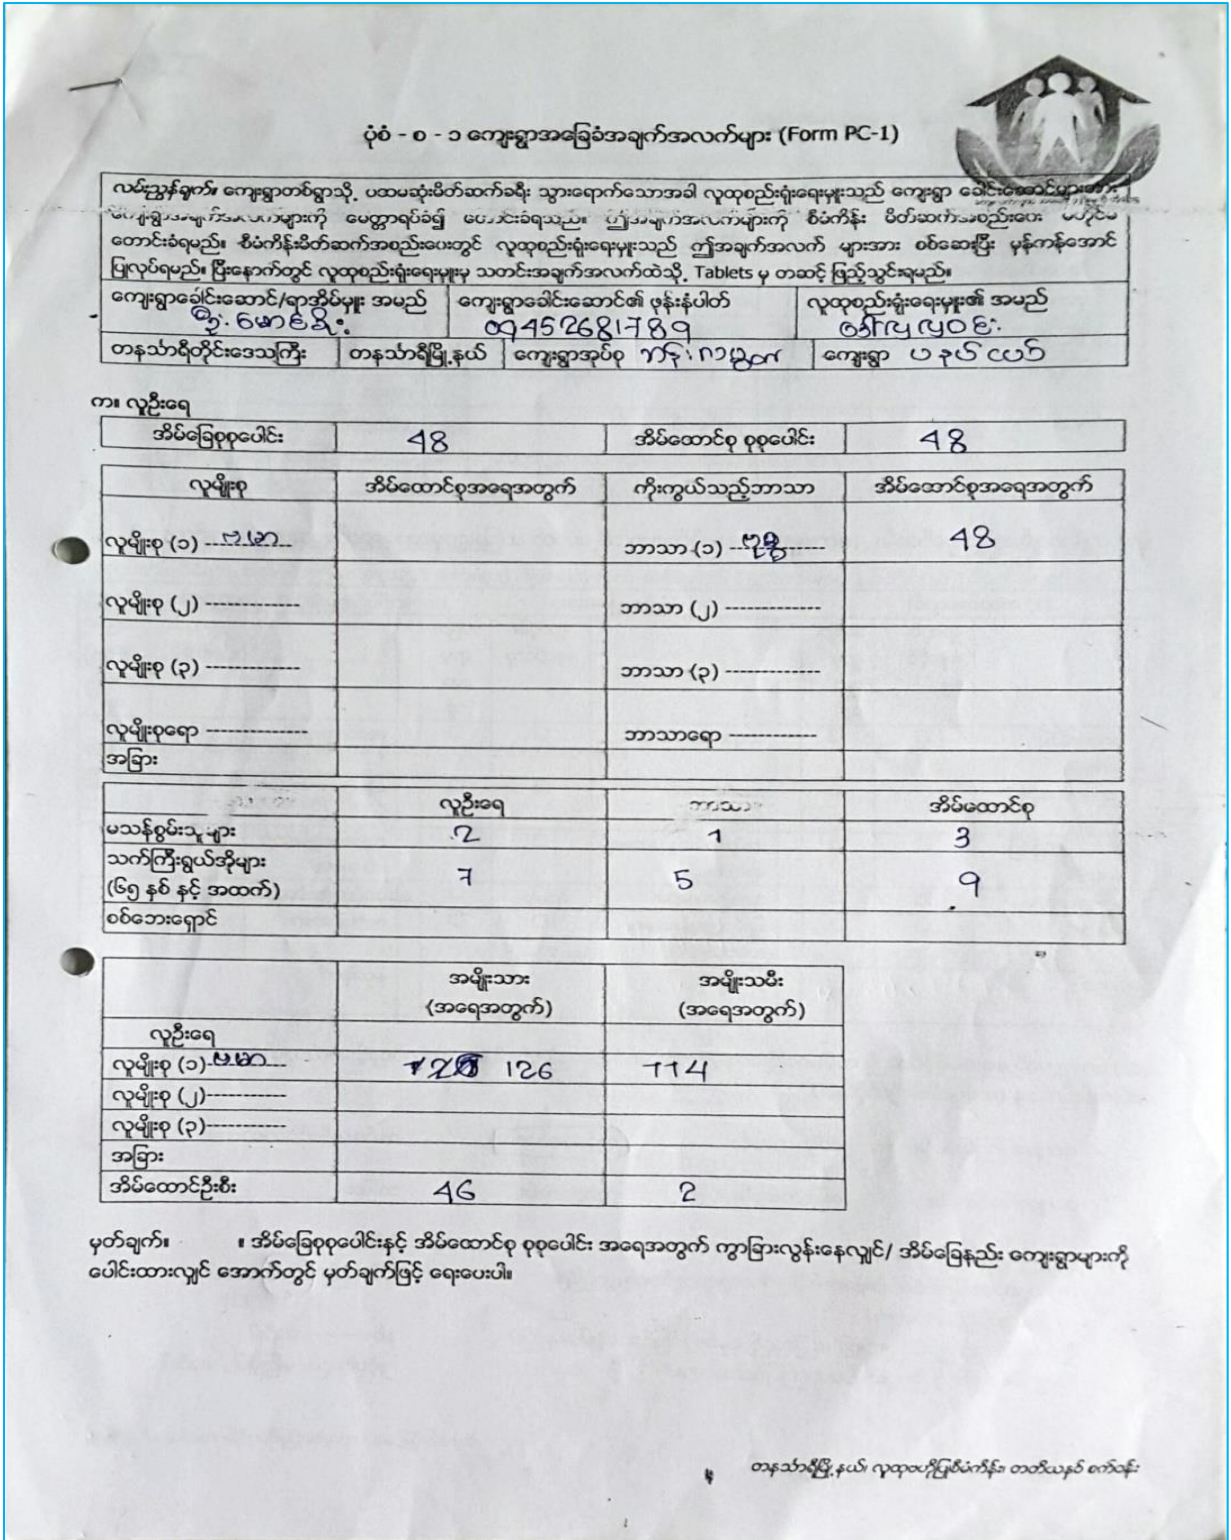 ပုံစံ - စ - ၁ ကျေးရွာအခြေခံအချက်အလက်များ (Form PC-1)
လမ်းညွှန်ချက်။ ကျေးရွာတစ်ရွာသို့ ပထမဆုံးမိတ်ဆက်ခရီး သွားရောက်သောအခါ လူထုစည်းရုံးရေးမှူးသည် ကျေးရွာ ခေါင်းဆောင်များအား
ကျေးရွာအချက်အလက်များကို မေတ္တာရပ်ခံ၍ တောင်းခံရသည်။ ဤအချက်အလက်များကို စီမံကိန်း မိတ်ဆက်အစည်းဝေး မတိုင်မီ
တောင်းခံရမည်။ စီမံကိန်းမိတ်ဆက်အစည်းဝေးတွင် လူထုစည်းရုံးရေးမှူးသည် ဤအချက်အလက် များအား စစ်ဆေးပြီး မှန်ကန်အောင်
ပြုလုပ်ရမည်။ ပြီးနောက်တွင် လူထုစည်းရုံးရေးမှူးမှ သတင်းအချက်အလက်ထဲသို့ Tablets မှ တဆင့် ဖြည့်သွင်းရမည်။
ကျေးရွာခေါင်းဆောင်/ရာအိမ်မှူး အမည် ကျေးရွာခေါင်းဆောင်၏ ဖုန်းနံပါတ် လူထုစည်းရုံးရေးမှူး၏ အမည်
ဦးမောင်စိုး 09452681789 ဒေါ်လှလှဝင်း
တနင်္သာရီတိုင်းဒေသကြီး တနင်္သာရီမြို့နယ် ကျေးရွာအုပ်စု ကျေးရွာ
က။ လူဦးရေ
အိမ်ခြေစုစုပေါင်း 48 အိမ်ထောင်စု စုစုပေါင်း 48
လူမျိုးစု အိမ်ထောင်စုအရေအတွက် ကိုးကွယ်သည့်ဘာသာ အိမ်ထောင်စုအရေအတွက်
လူမျိုးစု (၁) ဗမာ ဘာသာ (၁) ဗုဒ္ဓ 48
လူမျိုးစု (၂) ------------ ဘာသာ (၂) -------------
လူမျိုးစု (၃) ------------ ဘာသာ (၃) ------------
လူမျိုးစုရော ------------- ဘာသာရော ------------
အခြား
လူဦးရေ ဘာသာ အိမ်ထောင်စု
မသန်စွမ်းသူများ 2 1 3
သက်ကြီးရွယ်အိုများ
(၆၅ နှစ် နှင့် အထက်) 7 5 9
စစ်ဘေးရှောင်
အမျိုးသား အမျိုးသမီး
(အရေအတွက်) (အရေအတွက်)
လူဦးရေ
လူမျိုးစု (၁) ဗမာ 126 114
လူမျိုးစု (၂)-----------
လူမျိုးစု (၃)-----------
အခြား
အိမ်ထောင်ဦးစီး 46 2
မှတ်ချက်။ ။ အိမ်ခြေစုစုပေါင်းနှင့် အိမ်ထောင်စု စုစုပေါင်း အရေအတွက် ကွာခြားလွန်းနေလျှင်/ အိမ်ခြေနည်း ကျေးရွာများကို
ပေါင်းထားလျှင် အောက်တွင် မှတ်ချက်ဖြင့် ရေးပေးပါ။
တနင်္သာရီမြို့နယ်၊ လူထုဗဟိုပြုစီမံကိန်း၊ တတိယနှစ် စက်ဝန်း